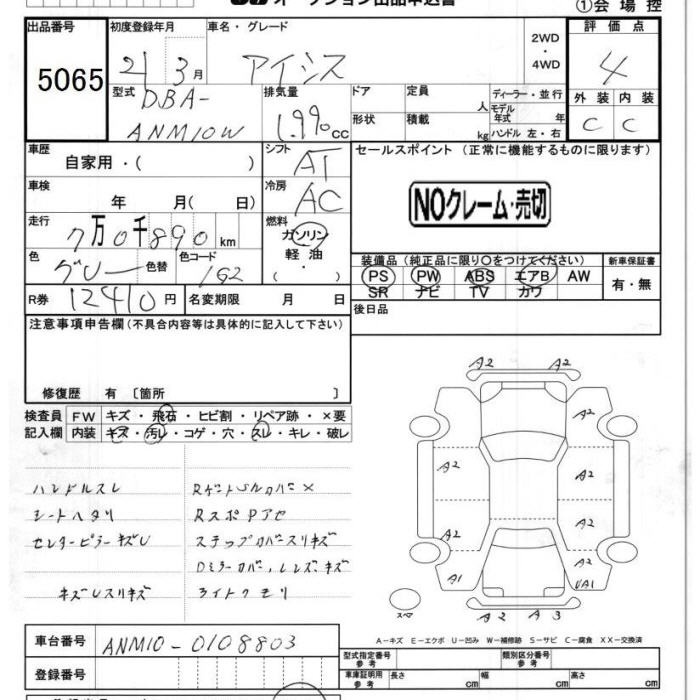 オークション出品申込書 ①会場控
出品番号 初度登録年月 車名・グレード 2WD・4WD 評価点
5065 21 3月 アイシス 4
型式 DBA-ANM10W 排気量 1.99 CC ドア 定員 人 ディーラー・並行 外装 内装
形状 積載 kg モデル年式 年 ハンドル 左・右 C C
車歴 自家用・( ) シフト AT セールスポイント (正常に機能するものに限ります)
車検 年 月( 日) 冷房 AC NOクレーム・売切
走行 7万0千890km 燃料 ガソリン 軽油・( )
色 グレー 色替 色コード 1G2
装備品 (純正品に限り○をつけてください) 新車保証書
PS PW ABS エアB AW 有・無
SR ナビ TV カワ
R券 12410円 名変期限 月 日 後日品
注意事項申告欄 (不具合内容等は具体的に記入して下さい)
修復歴 有 〔箇所 〕
検査員 FW キズ・飛石・ヒビ割・リペア跡・×要
記入欄 内装 キズ・汚レ・コゲ・穴・スレ・キレ・破レ
ハンドルスレ
シートヘタリ RスポPアセ
センターピラーキズU ステップカバースリキズ
Dミラーカバー、レンズ、キズ
キズレスリキズ ライトクモリ
A2 A2
A2
A2 A2
A2 A2
A1 UA1
A2 A3
スペ
A-キズ E-エクボ U-凹み W-補修跡 S-サビ C-腐食 XX-交換済
車台番号 ANM10-0108803
型式指定番号 参考 類別区分番号 参考
登録番号 車庫証明用 参考 長さ cm 幅 cm 高さ cm